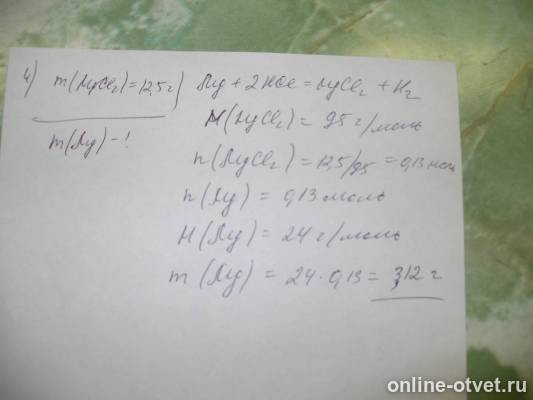 4) m(MgCl₂)=12,5 г
m(Mg) - ?
Mg + 2HCl = MgCl₂ + H₂
M(MgCl₂) = 95 г/моль
n(MgCl₂) = 12,5/95 = 0,13 моль
n(Mg) = 0,13 моль
M(Mg) = 24 г/моль
m(Mg) = 24·0,13 = 3,12 г
online-otvet.ru